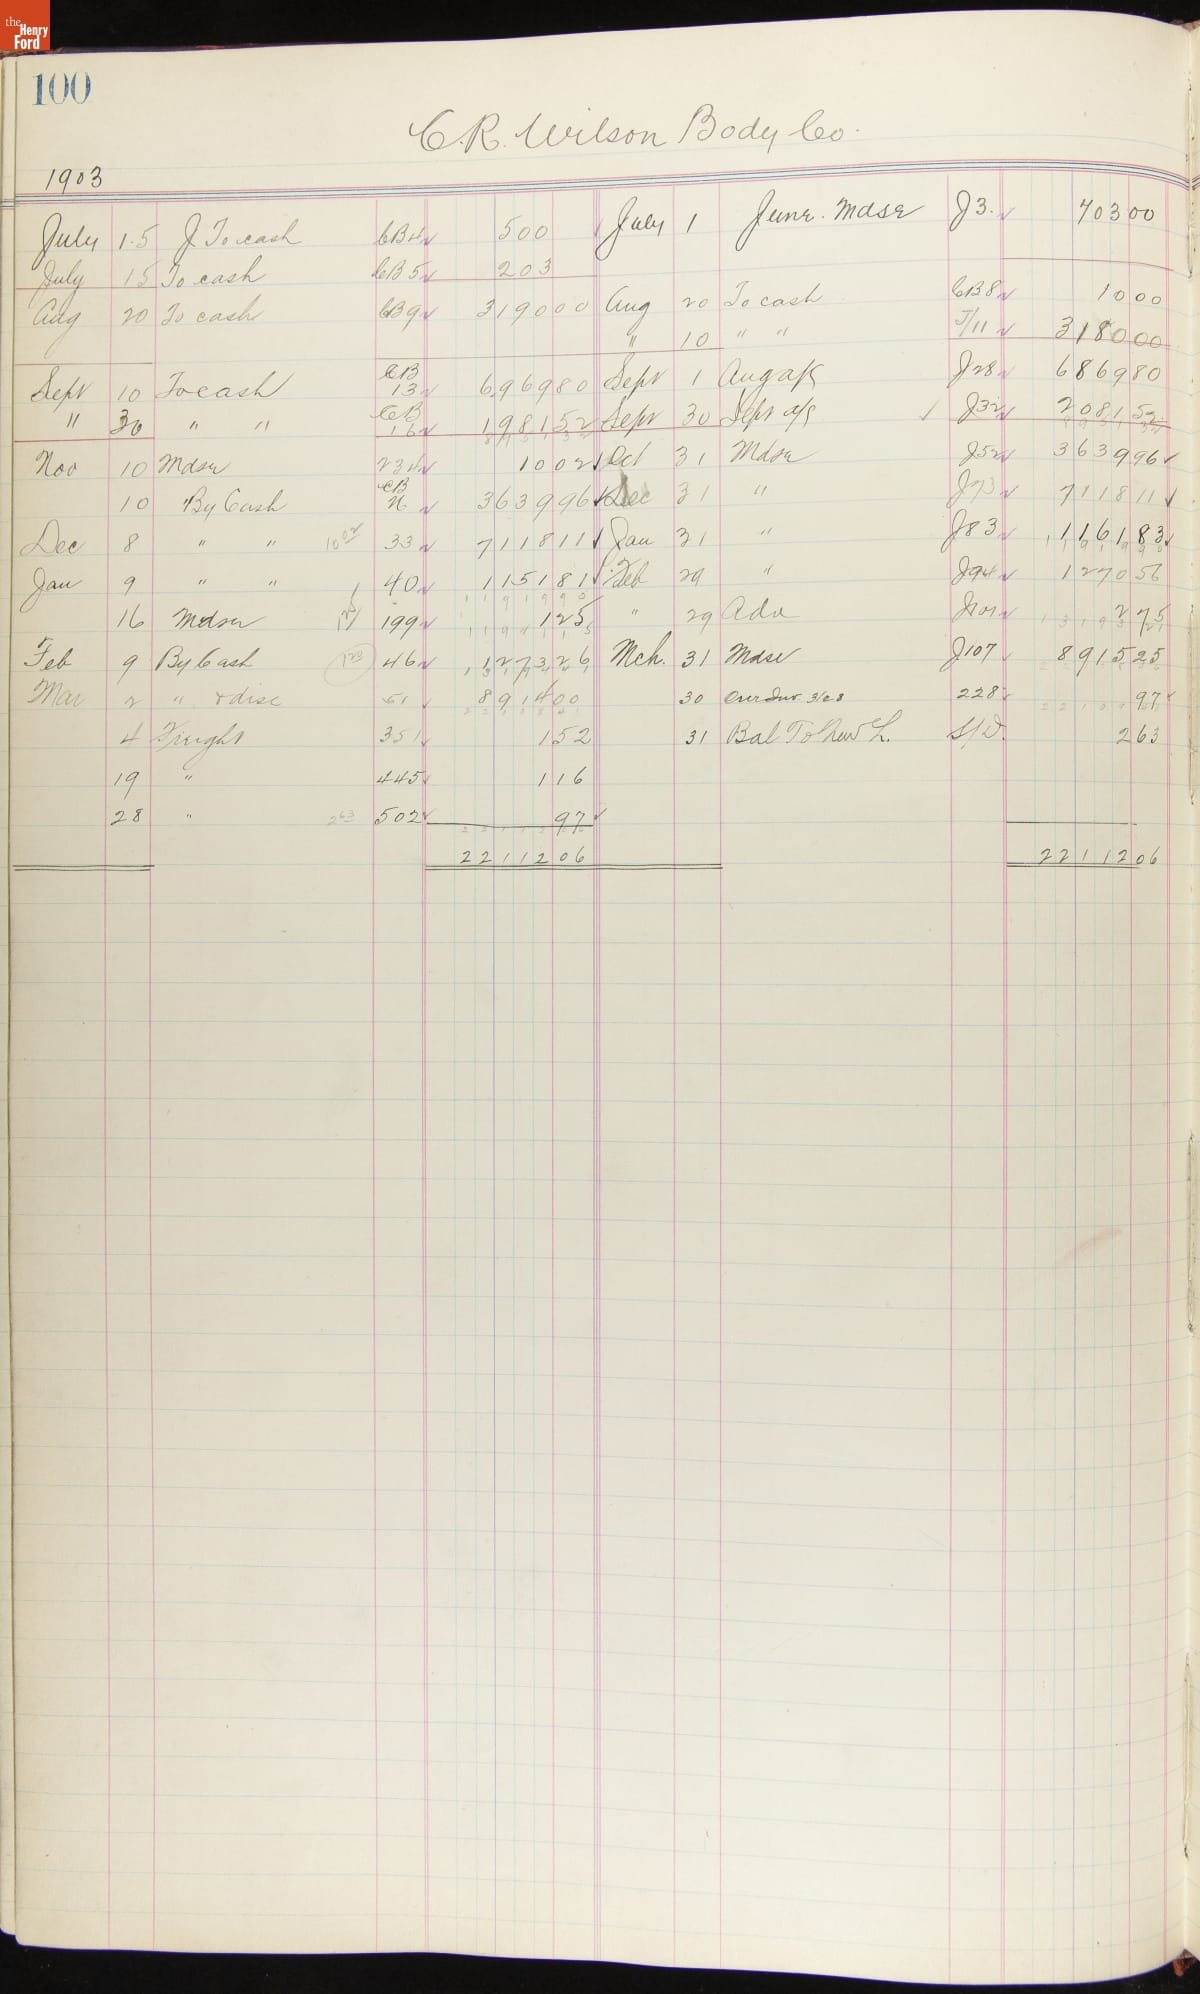 the Henry Ford
100
C. R. Wilson Body Co.
1903
July 15 J To cash CB4 500 July 1 June. Mdse J3. 70300
July 15 To cash CB5 203
Aug 20 To cash CB9 319000 Aug 20 To cash CB8 1000
" 10 " " J/11 318000
Sept 10 To cash CB 13 696980 Sept 1 Aug a/c J28 686980
" 30 " " CB 16 198152 Sept 30 Sept a/c J32 208152
Nov 10 Mdse 234 1002 Oct 31 Mdse J52 363996
10 By Cash CB 363996 Dec 31 " J73 711811
Dec 8 " " 10 02 33 711811 Jan 31 " J83 116183
Jan 9 " " 40 115181 Feb 29 " J94 127056
16 Mdse 199 125 " 29 Adv J101 275
Feb 9 By Cash 123 46 127326 Mch. 31 Mdse J107 891525
Mar 2 " & disc 51 891400 30 228 97
4 Freight 351 152 31 Bal To New L. 263
19 " 445 116
28 " 263 502 97
2211206 2211206